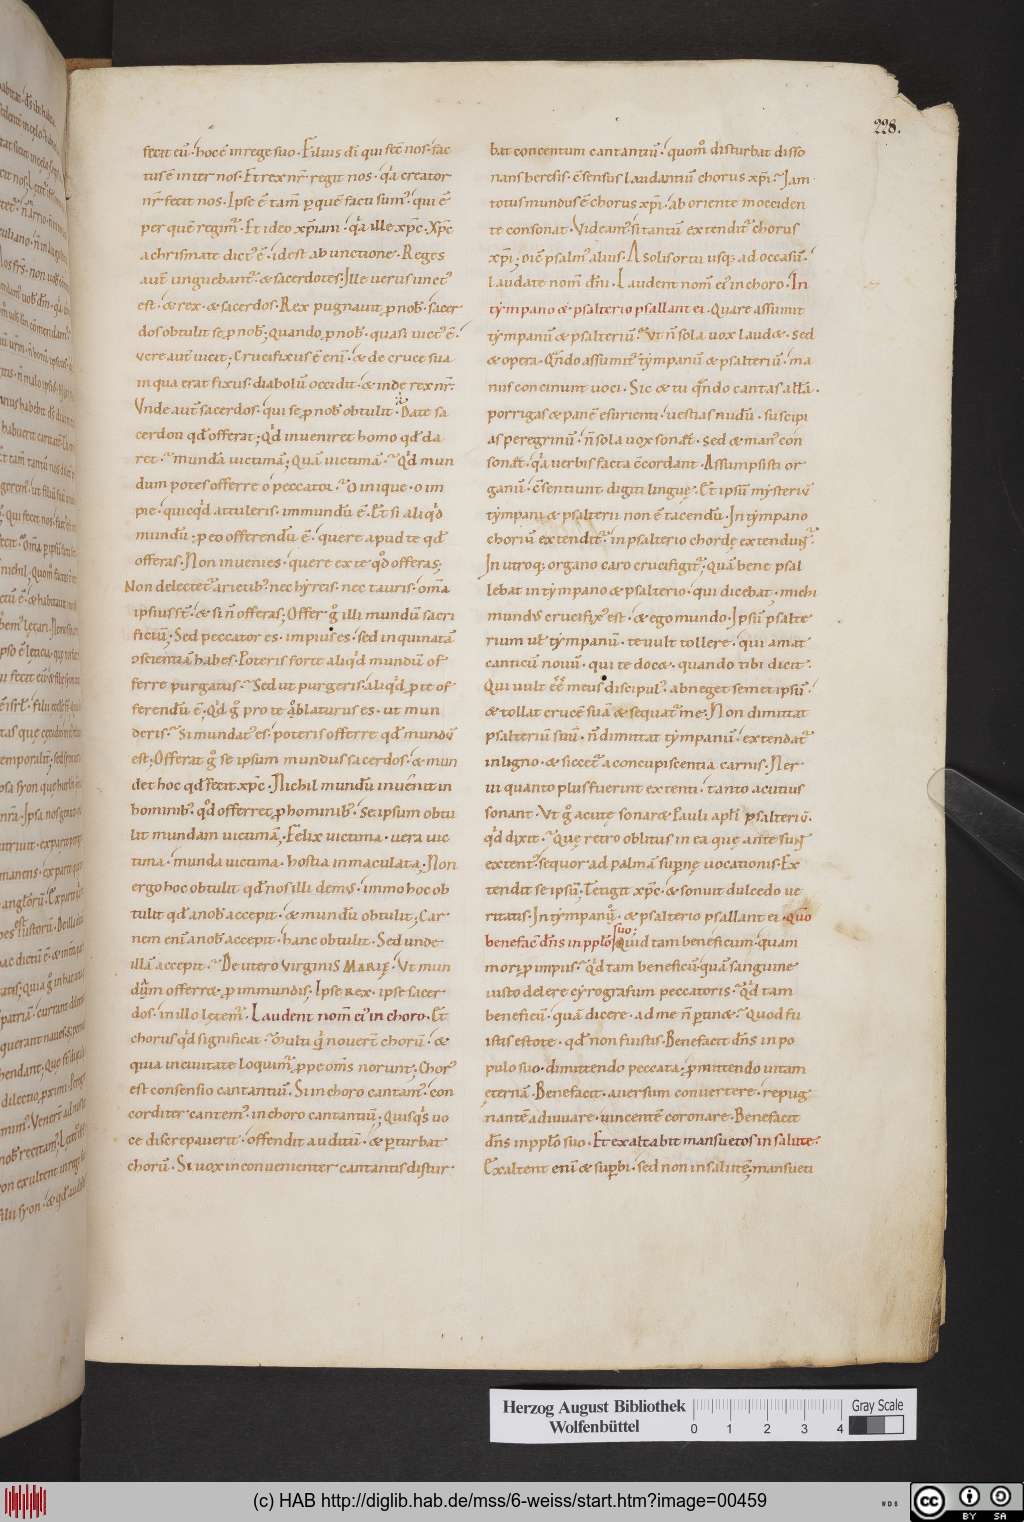 228.
fecit eū· hoc ē in rege suo· Filius dī qui fēc nos· fac
tus ē inter nos· Et rex nr̄ regit nos· qa creator
nr̄ fecit nos· Ipse ē tam̄ p quē facti sum'· qui ē
per quē regim'· Et ideo xp̄iani· qa ille xp̄c· Xp̄c
a chrismate dict' ē· id est ab unctione· Reges
aut̄ unguebant'· & sacerdotes· Ille uerus unct'
est· & rex· & sacerdos· Rex pugnauit p nob· sacer
dos obtulit se p nob; quando p nob· quasi uict' ē·
uere aut̄ uicit; Crucifixus ē eni· & de cruce sua
in qua erat fixus· diabolū occidit· & inde rex nr̄·
Vnde aut̄ sacerdos· qui se p nob obtulit· Date sa
cerdoti qd offerat; Qd inueniret homo qd da
ret· mundā uictimā; Quā uictimā· Qd mun
dum potes offerre o peccator· O inique· o im
pie· quicqd attuleris· immundū ē· Et si aliqd
mundū; p eo offerendū ē· quere apud te qd
offeras· Non inuenies· quere ex te qd offeras;
Non delectet' arietib'· nec hyrcis· nec tauris· om̄a
ipsius st̄· & si n̄ offeras; Offer g illi mundū sacri
ficiū; Sed peccator es· impius es· sed inquinatā
ɔscientiā habes· Poteris forte aliqd mundū of
ferre purgatus· Sed ut purgeris· aliqd p te of
ferendū ē; Qd g pro te ablaturus es· ut mun
deris· Si mundat' es· poteris offerre qd mundū
est; Offerat g se ipsum mundus sacerdos· & mun
det hoc qd fecit xp̄c· Nichil mundū inuenit in
hominib'· qd offerret p hominib'· Se ipsum obtu
lit mundam uictimā; Felix uictima· uera uic
tima· munda uictima· hostia inmaculata; Non
ergo hoc obtulit qd nos illi dem'· immo hoc ob
tulit qd a nob accepit· & mundū obtulit; Car
nem eni a nob accepit· hanc obtulit· Sed unde
illā accepit· De utero virginis MARIĘ· Vt mun
dam offerret· p immundis· Ipse rex· ipse sacer
dos· in illo lętem'· Laudent nom̄ ei' in choro· Et
chorus qd significat· Multi q nouerт chorū· &
quia in ciuitate loquim'· ppe om̄s norunt; Chor'
est consensio cantantiū· Si in choro cantam'· con
corditer cantem'· in choro cantantiū; Quisqs uo
ce discrepauerit· offendit auditū· & pturbat
chorū· Si uox inconuenienter cantantis distur
bat concentum cantantiū· quom̄ disturbat disso
nans heresis· c̄sensus laudantiū chorus xp̄i· Iam
totus mundus ē chorus xp̄i· ab oriente in occiden
te consonat· Videam' si tantū extendit' chorus
xp̄i; Dic̄ psalm' alius· A solis ortu usq; ad occasū·
laudate nom̄ dn̄i· Laudent nom̄ ei' in choro· In
tympano & psalterio psallant ei· Quare assumit
tympanū & psalteriū· Vt n̄ sola uox laudæ· sed
& opera· Qn̄do assumit' tympanū & psalteriū· ma
nus concinunt uoci· Sic & tu qn̄do cantas allā·
porrigas & panē esurienti· uestias nudū· suscipi
as peregrinū· n̄ sola uox sonat· sed & man' con
sonat· qa uerbis facta c̄cordant· Assumpsisti or
ganū· c̄sentiunt digiti linguę· Et ipsū mysteriū
tympani & psalterii non ē tacendū· In tympano
choriū extendit'· in psalterio chordę extendunt'·
In utroq; organo caro crucifigit'; Quā bene psal
lebat in tympano & psalterio· qui dicebat· michi
mund' crucifix' est· & ego mundo· Ipsū psalte
rium ul tympanū· te uult tollere· qui amat
canticū nouū· qui te docæ· quando tibi dicit·
Qui uult ēē meus discipul'· abneget semet ipsū·
& tollat crucē suā & sequat' me· Non dimittat
psalteriū suū· n̄ dimittat tympanū· extendat'
in ligno· & siccet' a concupiscentia carnis· Ner
ui quanto plus fuerint extenti· tanto acutius
sonant· Vt g acutę sonaræ Pauli apl̄i psalteriū·
qd dixit· Quę retro oblitus in ea quę ante sunt
extent'· sequor ad palmā supnę uocationis· Ex
tendit se ipsū; Tetigit xp̄c· & sonuit dulcedo ue
ritatis· In tympanū· & psalterio psallant ei· Quō
benefac̄ dn̄s in pplo suo· Quid tam beneficum· quam
mori p impiis· Qd tam beneficū· quā sanguine
iusto delere cyrografum peccatoris· Qd tam
beneficū· quā dicere· ad me n̄ ptinæ· Quod fu
istis estote· qd non fuistis· Benefacit dn̄s in po
pulo suo· dimittendo peccata· pmittendo uitam
ęternā· Benefacit· auersum conuertere· repug
nantē adiuuare· uincentē coronare· Benefacit
dn̄s in pplo suo· Et exaltabit mansuetos in salute·
Exaltent eni & supbi· sed non in salute; mansueti
Herzog August Bibliothek
Wolfenbüttel
0 1 2 3 4
Gray Scale
(c) HAB http://diglib.hab.de/mss/6-weiss/start.htm?image=00459
WDB
cc BY SA